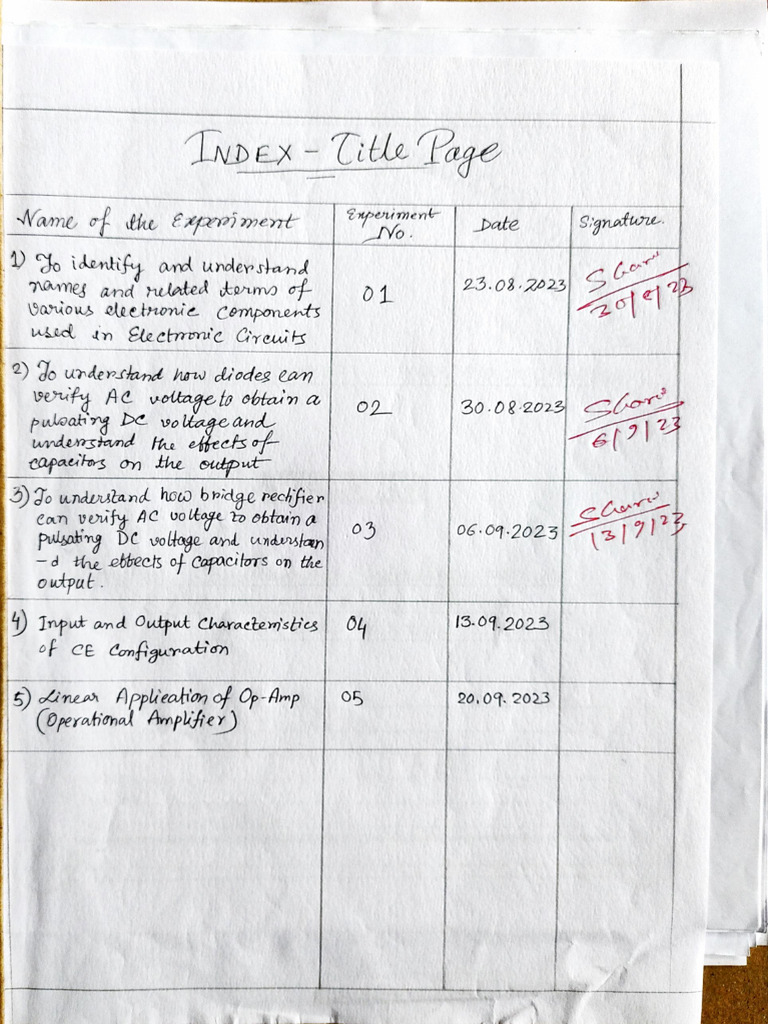 INDEX - Title Page
Name of the Experiment
Experiment No.
Date
Signature.
1) To identify and understand
names and related terms of
various electronic components
used in Electronic Circuits
01
23.08.2023
30/8/23
2) To understand how diodes can
verify AC voltage to obtain a
pulsating DC voltage and
understand the effects of
capacitors on the output
02
30.08.2023
6/9/23
3) To understand how bridge rectifier
can verify AC voltage to obtain a
pulsating DC voltage and understan
-d the effects of capacitors on the
output.
03
06.09.2023
13/9/23
4) Input and Output Characteristics
of CE Configuration
04
13.09.2023
5) Linear Application of Op-Amp
(Operational Amplifier)
05
20.09.2023